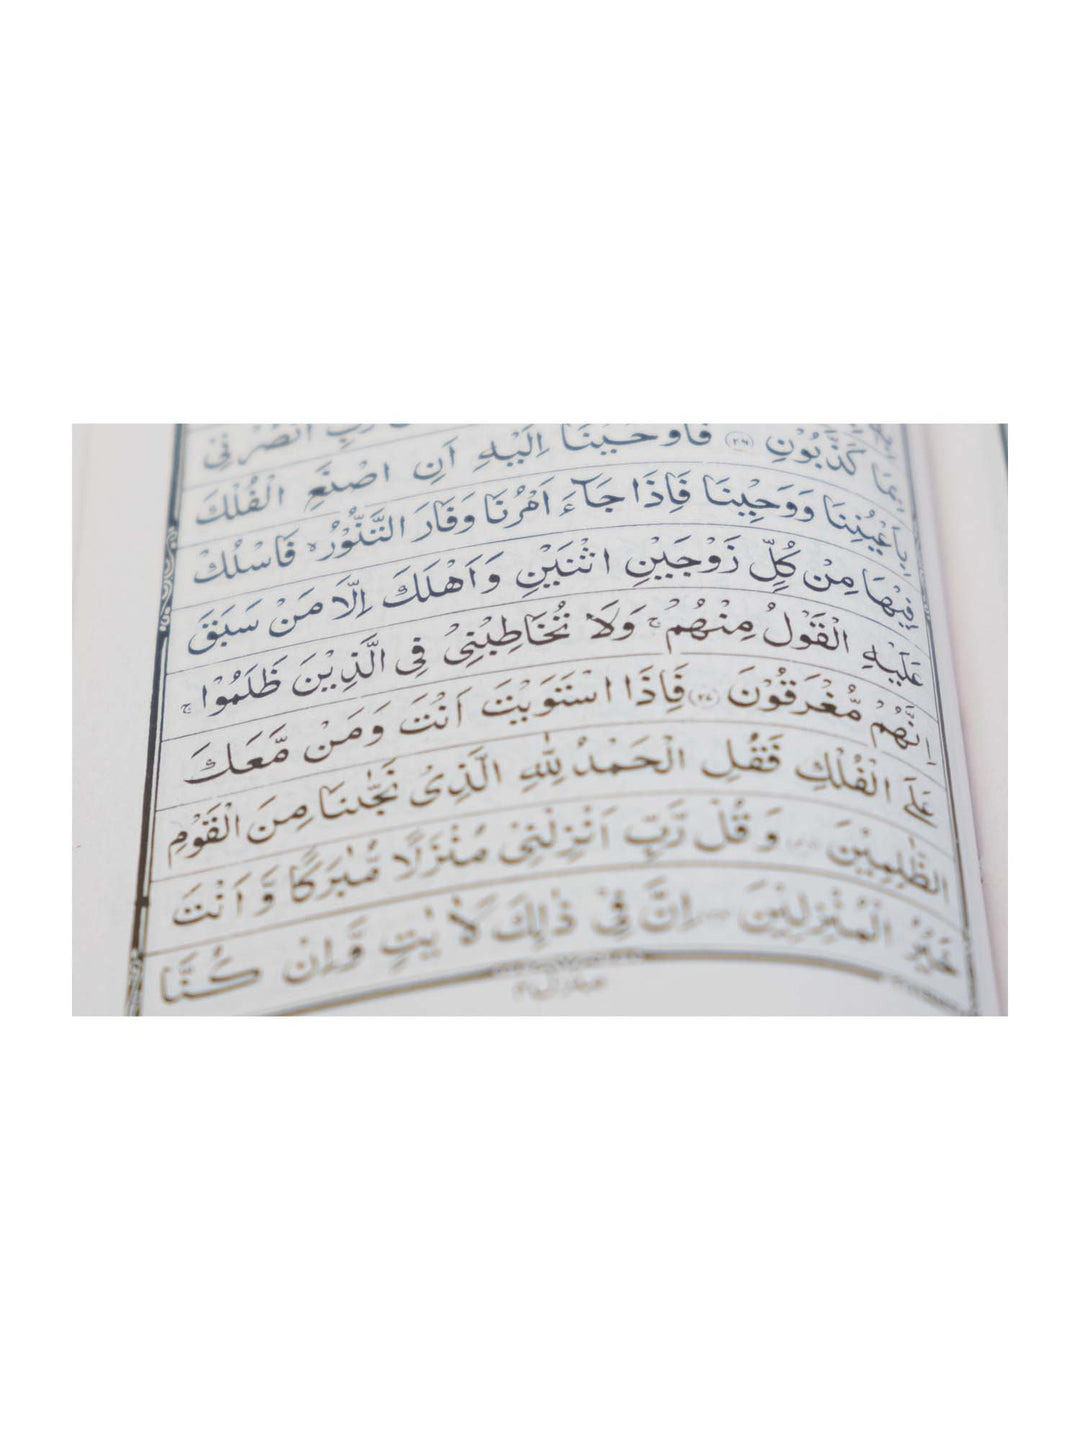 رَبِّ انْصُرْنِيْ
بِمَا كَذَّبُوْنِ ﴿٢٦﴾ فَاَوْحَيْنَاۤ اِلَيْهِ اَنِ اصْنَعِ الْفُلْكَ
بِاَعْيُنِنَا وَوَحْيِنَا فَاِذَا جَآءَ اَمْرُنَا وَفَارَ التَّنُّوْرُ ۙ فَاسْلُكْ
فِيْهَا مِنْ كُلٍّ زَوْجَيْنِ اثْنَيْنِ وَاَهْلَكَ اِلَّا مَنْ سَبَقَ
عَلَيْهِ الْقَوْلُ مِنْهُمْ ۚ وَلَا تُخَاطِبْنِيْ فِي الَّذِيْنَ ظَلَمُوْا ۚ
اِنَّهُمْ مُّغْرَقُوْنَ ﴿٢٧﴾ فَاِذَا اسْتَوَيْتَ اَنْتَ وَمَنْ مَّعَكَ
عَلَى الْفُلْكِ فَقُلِ الْحَمْدُ لِلّٰهِ الَّذِيْ نَجّٰىنَا مِنَ الْقَوْمِ
الظّٰلِمِيْنَ وَقُلْ رَّبِّ اَنْزِلْنِيْ مُنْزَلًا مُّبٰرَكًا وَّاَنْتَ
خَيْرُ الْمُنْزِلِيْنَ اِنَّ فِيْ ذٰلِكَ لَاٰيٰتٍ وَّاِنْ كُنَّا